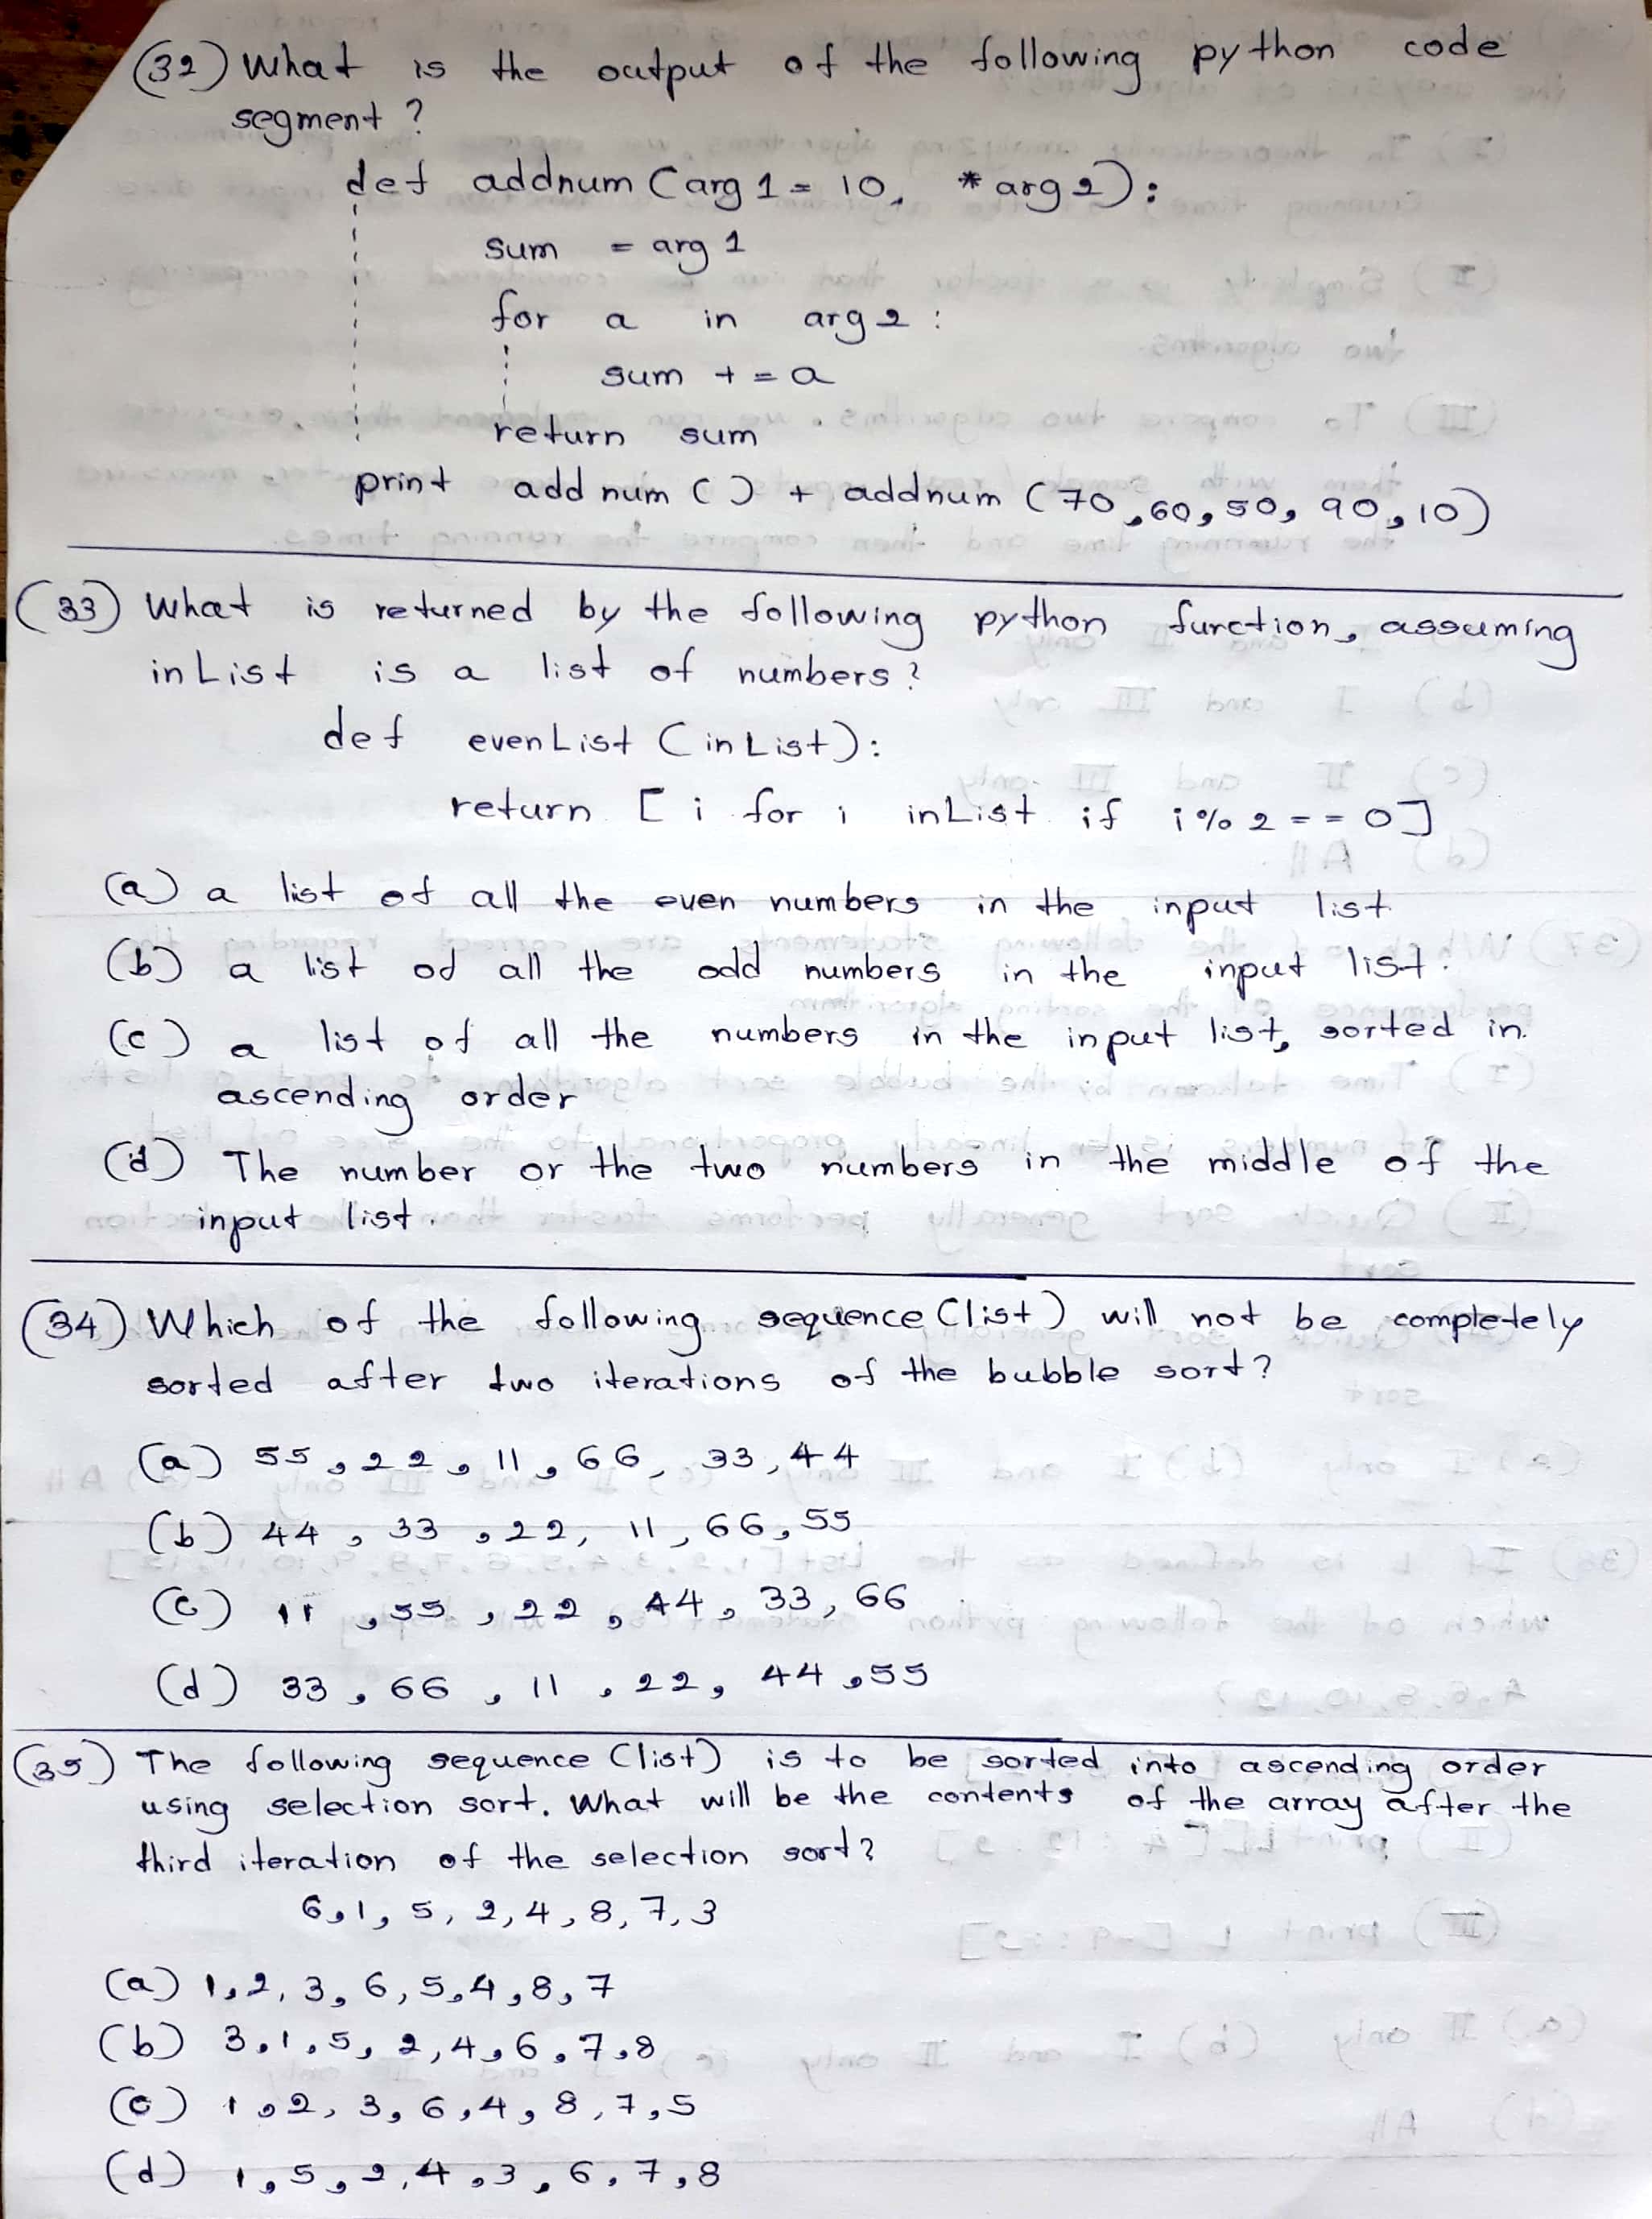 (32) What is the output of the following python code
segment ?
def addnum (arg 1 = 10, * arg 2) :
sum = arg 1
for a in arg 2 :
sum + = a
return sum
print addnum ( ) + addnum ( 70 , 60 , 50 , 90 , 10 )
(33) What is returned by the following python function, assuming
inList is a list of numbers ?
def evenList (inList) :
return [ i for i inList if i % 2 = = 0 ]
(a) a list of all the even numbers in the input list
(b) a list of all the odd numbers in the input list.
(c) a list of all the numbers in the input list, sorted in
ascending order
(d) The number or the two numbers in the middle of the
input list.
(34) Which of the following sequence (list) will not be completely
sorted after two iterations of the bubble sort ?
(a) 55 , 22 , 11 , 66 , 33 , 44
(b) 44 , 33 , 22 , 11 , 66 , 55
(c) 11 , 55 , 22 , 44 , 33 , 66
(d) 33 , 66 , 11 , 22 , 44 , 55
(35) The following sequence (list) is to be sorted into ascending order
using selection sort. What will be the contents of the array after the
third iteration of the selection sort ?
6 , 1 , 5 , 2 , 4 , 8 , 7 , 3
(a) 1 , 2 , 3 , 6 , 5 , 4 , 8 , 7
(b) 3 , 1 , 5 , 2 , 4 , 6 , 7 , 8
(c) 1 , 2 , 3 , 6 , 4 , 8 , 7 , 5
(d) 1 , 5 , 2 , 4 , 3 , 6 , 7 , 8